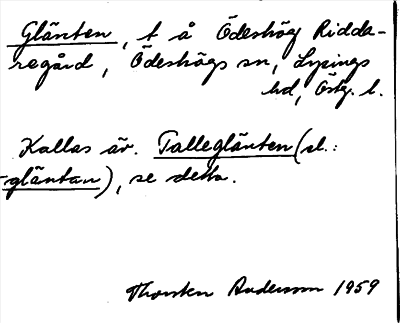 Glänten, t å Ödeshög Ridda-
regård, Ödeshögs sn, Lysings
hd, Östg. l.
Kallas äv. Talleglänten (el.:
-gläntan), se detta.
Thorsten Andersson 1959